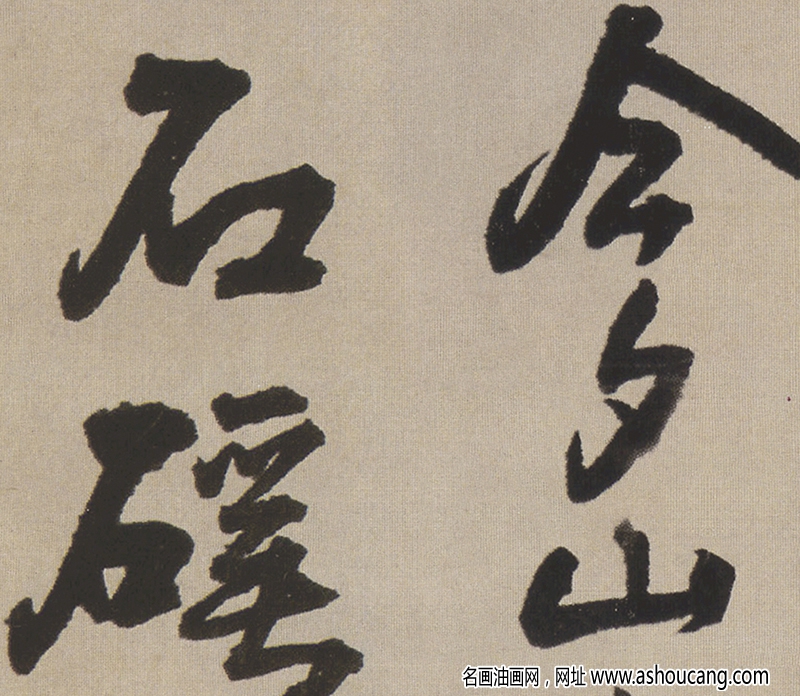 今夕山
石
名画油画网，网址 www.ashoucang.com